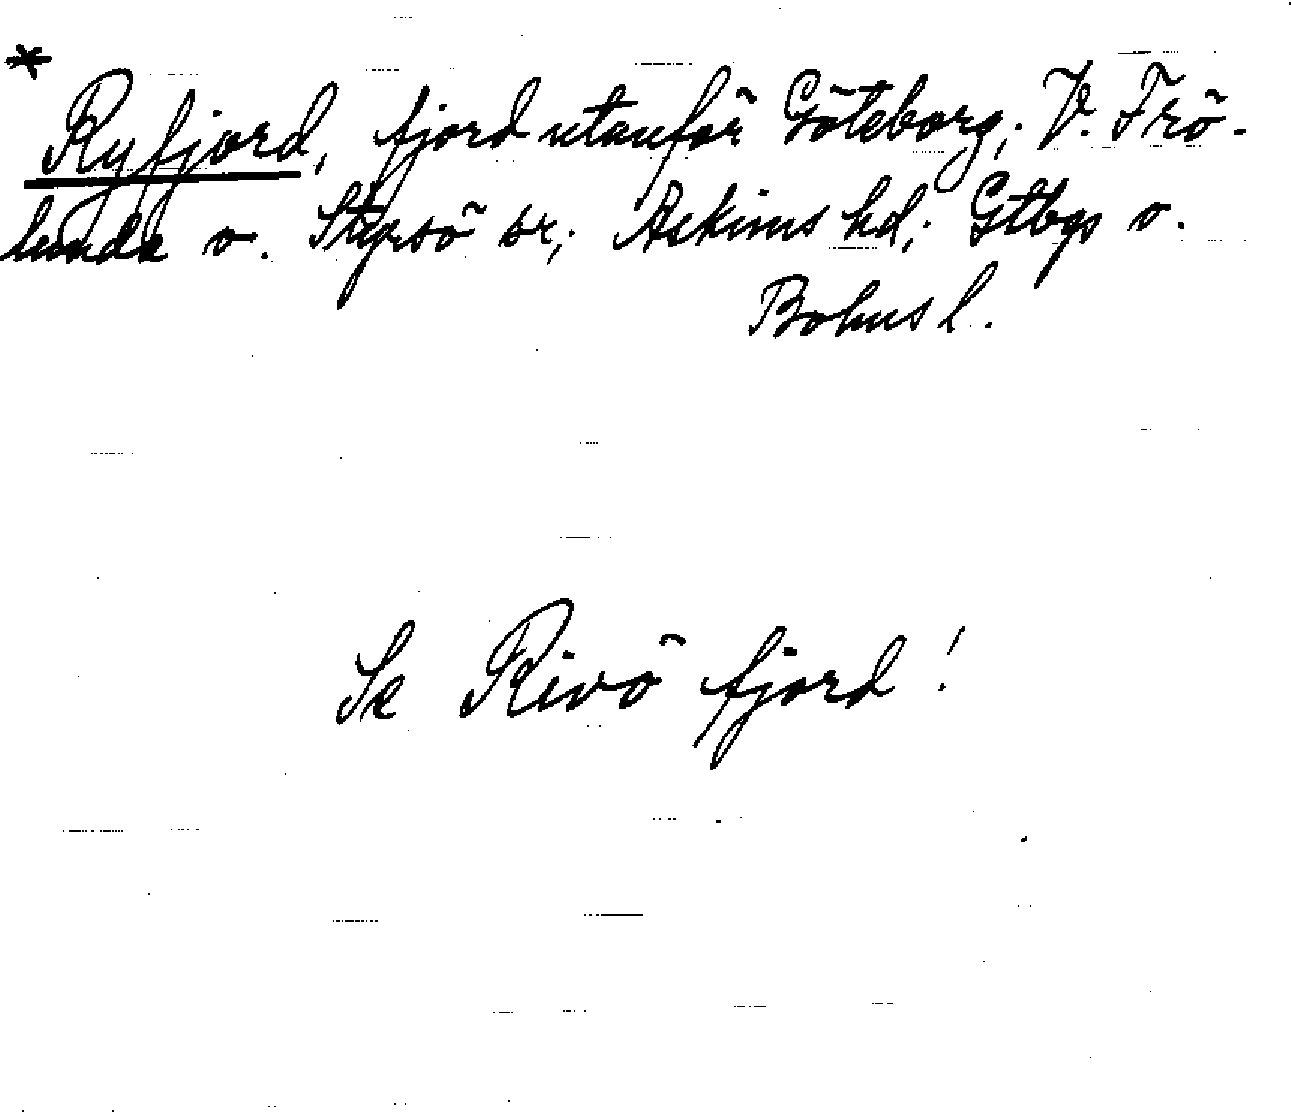 * Ryfjord, fjord utanför Göteborg; V. Frö-
lunda o. Styrsö sr; Askims hd; Gtbgs o.
Bohus l.
Se Rivö fjord!